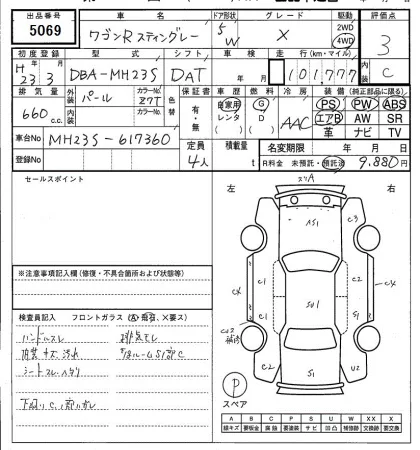 出品番号 車名 ドア形状 グレード 駆動 評価点
5069 ワゴンR スティングレー 5 W X 2WD 4WD 3
初度登録 型式 シフト 車検 走行(km・マイル) 内装
H 23 3 DBA-MH23S DAT 年 月 101,777 C
排気量 外装 パール カラーNo. Z7T 色替 保証書 車歴 燃料 冷房 装備 (純正部品に限る)
660 c.c. 内装 カラーNo. 有・無 自家用 レンタ G D AAC PS PW ABS
エアB AW SR
革 ナビ TV
車台No MH23S-617360 定員 積載量 名変期限 年 月 日
登録No 4人 t R料金 未預託・預託済 9,880円
セールスポイント 左 右
スリA
A51 C3
C1 C1
CX SU1 CX
C2 C1
CU2 補修
C2 S1 U2
※注意事項記入欄(修復・不具合箇所および状態等)
検査員記入 フロントガラス (A、飛石、×要ス)
ハンドルスレ 排気モレ
内装キズ汚れ
シートスレ・
下廻りC、
P
スペア
A B C P S U W XX X
線キズ 要板金 腐蝕 要塗装 サビ 凹凸 補修跡 交換跡 要交換